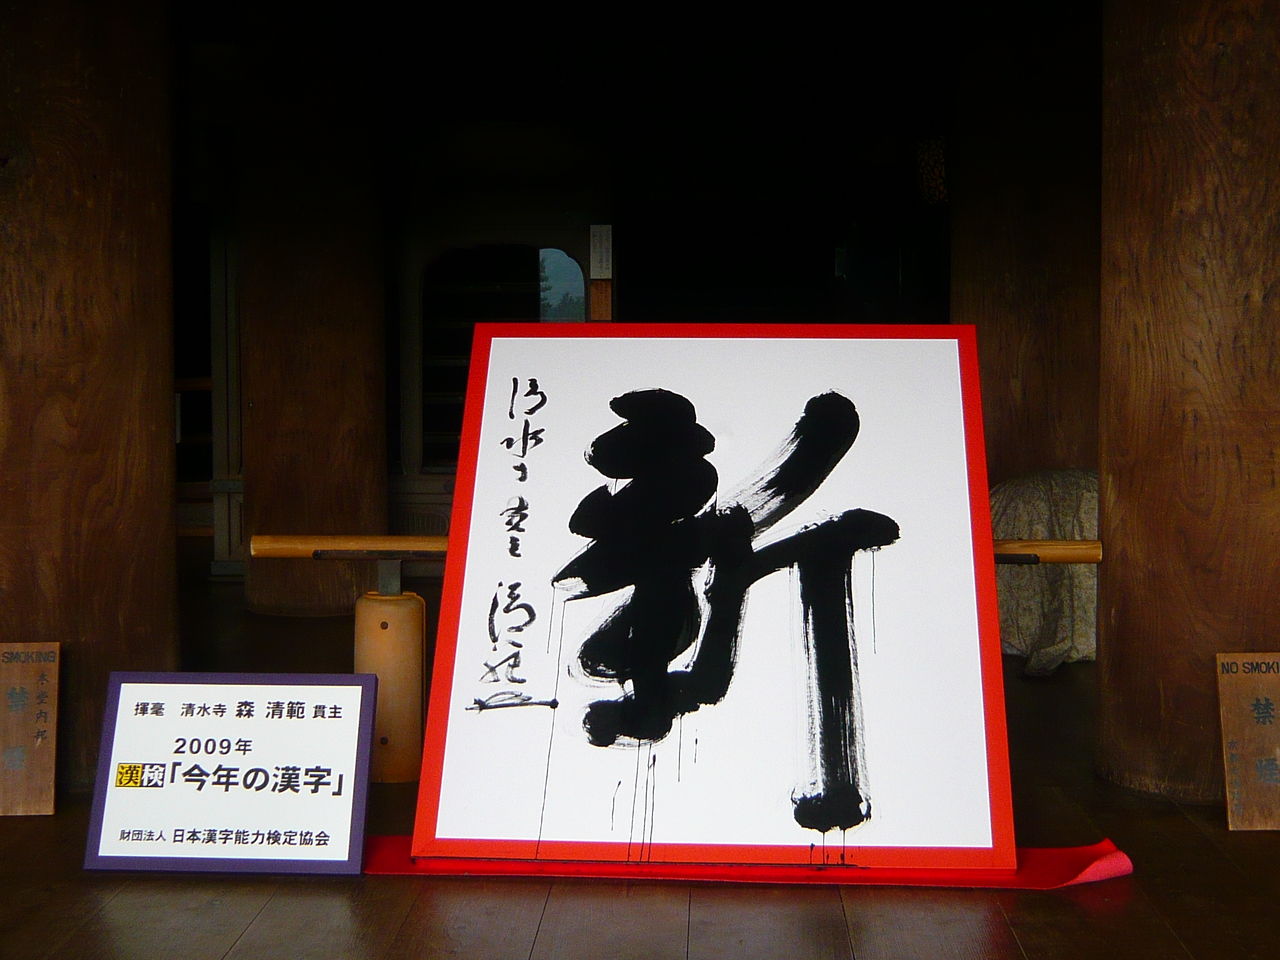 新
清水寺貫主
清範
揮毫 清水寺 森 清範 貫主
2009年
漢検「今年の漢字」
財団法人 日本漢字能力検定協会
SMOKING
本堂内外
禁
NO SMOKI
禁
煙